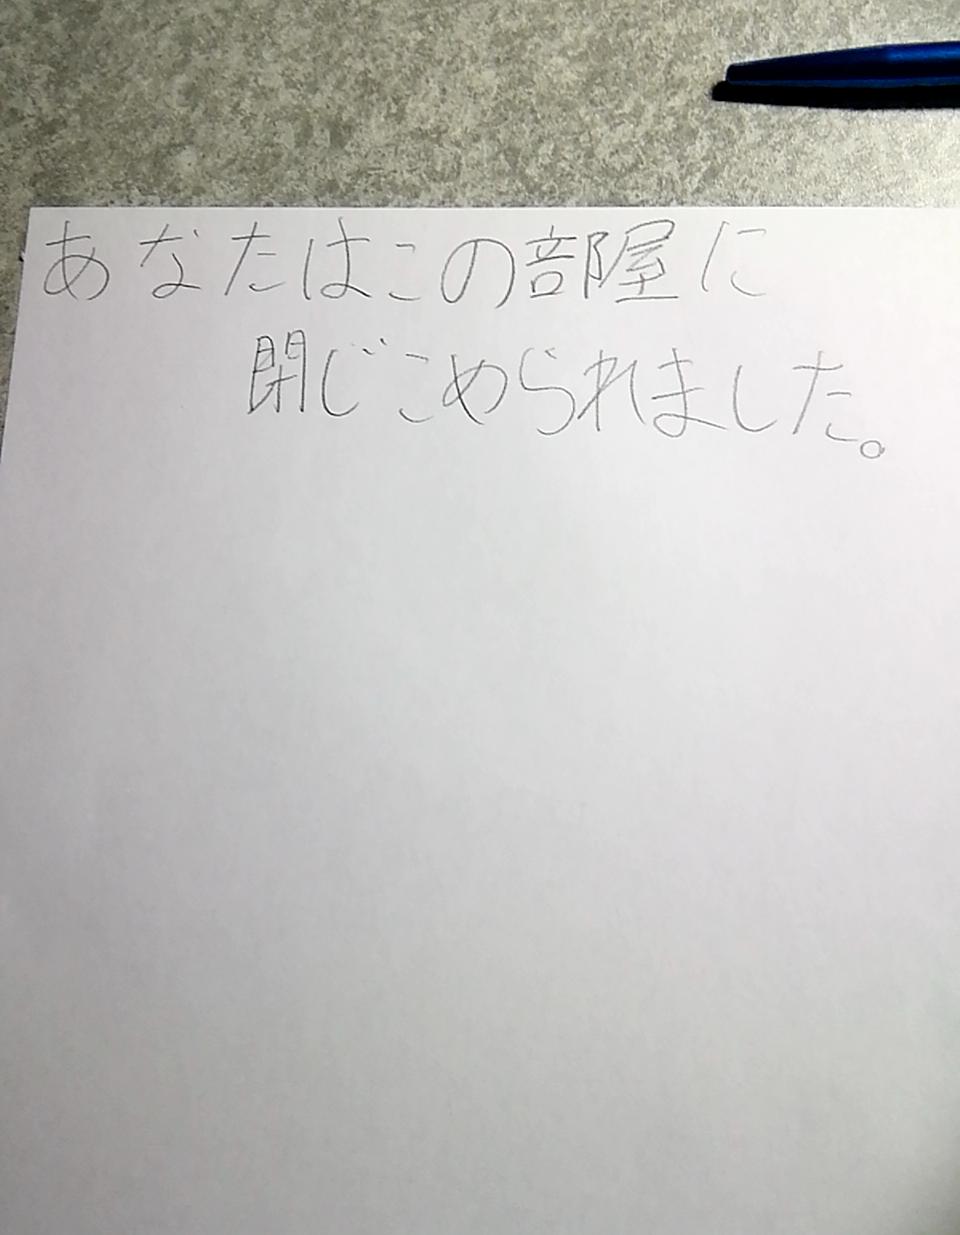 あなたはこの部屋に
閉じこめられました。